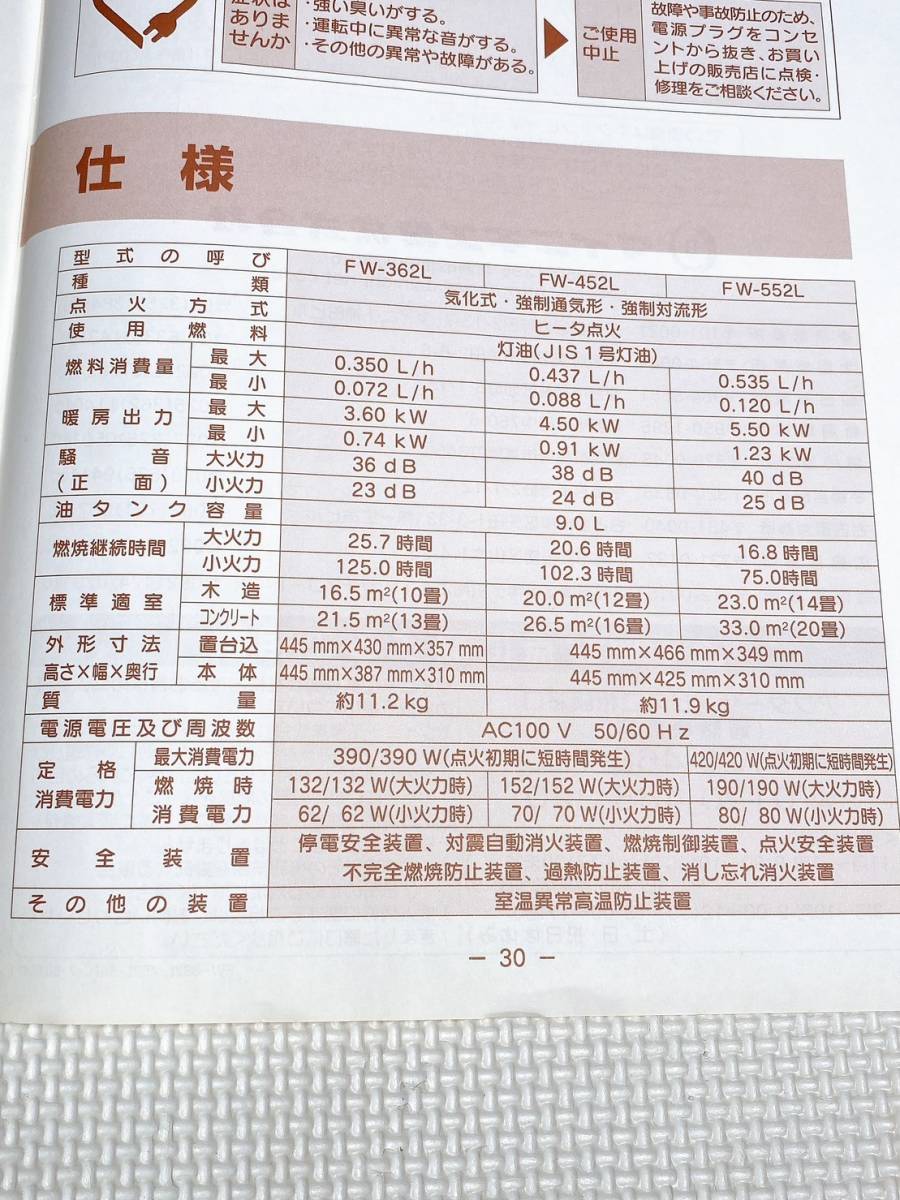 症状は
ありま
せんか
・強い臭いがする。
・運転中に異常な音がする。
・その他の異常や故障がある。
ご使用
中止
故障や事故防止のため、
電源プラグをコンセ
ントから抜き、お買い
上げの販売店に点検・
修理をご相談ください。
仕様
型式の呼び FW-362L FW-452L FW-552L
種類 気化式・強制通気形・強制対流形
点火方式 ヒータ点火
使用燃料 灯油(JIS1号灯油)
燃料消費量 最大 0.350 L/h 0.437 L/h 0.535 L/h
最小 0.072 L/h 0.088 L/h 0.120 L/h
暖房出力 最大 3.60 kW 4.50 kW 5.50 kW
最小 0.74 kW 0.91 kW 1.23 kW
騒音 大火力 36 dB 38 dB 40 dB
(正面) 小火力 23 dB 24 dB 25 dB
油タンク容量 9.0 L
燃焼継続時間 大火力 25.7時間 20.6時間 16.8時間
小火力 125.0時間 102.3時間 75.0時間
標準適室 木造 16.5 m²(10畳) 20.0 m²(12畳) 23.0 m²(14畳)
コンクリート 21.5 m²(13畳) 26.5 m²(16畳) 33.0 m²(20畳)
外形寸法 置台込 445 mm×430 mm×357 mm 445 mm×466 mm×349 mm
高さ×幅×奥行 本体 445 mm×387 mm×310 mm 445 mm×425 mm×310 mm
質量 約11.2 kg 約11.9 kg
電源電圧及び周波数 AC100 V 50/60 Hz
定格 最大消費電力 390/390 W(点火初期に短時間発生) 420/420 W(点火初期に短時間発生)
消費電力 燃焼時 132/132 W(大火力時) 152/152 W(大火力時) 190/190 W(大火力時)
消費電力 62/ 62 W(小火力時) 70/ 70 W(小火力時) 80/ 80 W(小火力時)
安全装置 停電安全装置、対震自動消火装置、燃焼制御装置、点火安全装置
不完全燃焼防止装置、過熱防止装置、消し忘れ消火装置
その他の装置 室温異常高温防止装置
- 30 -